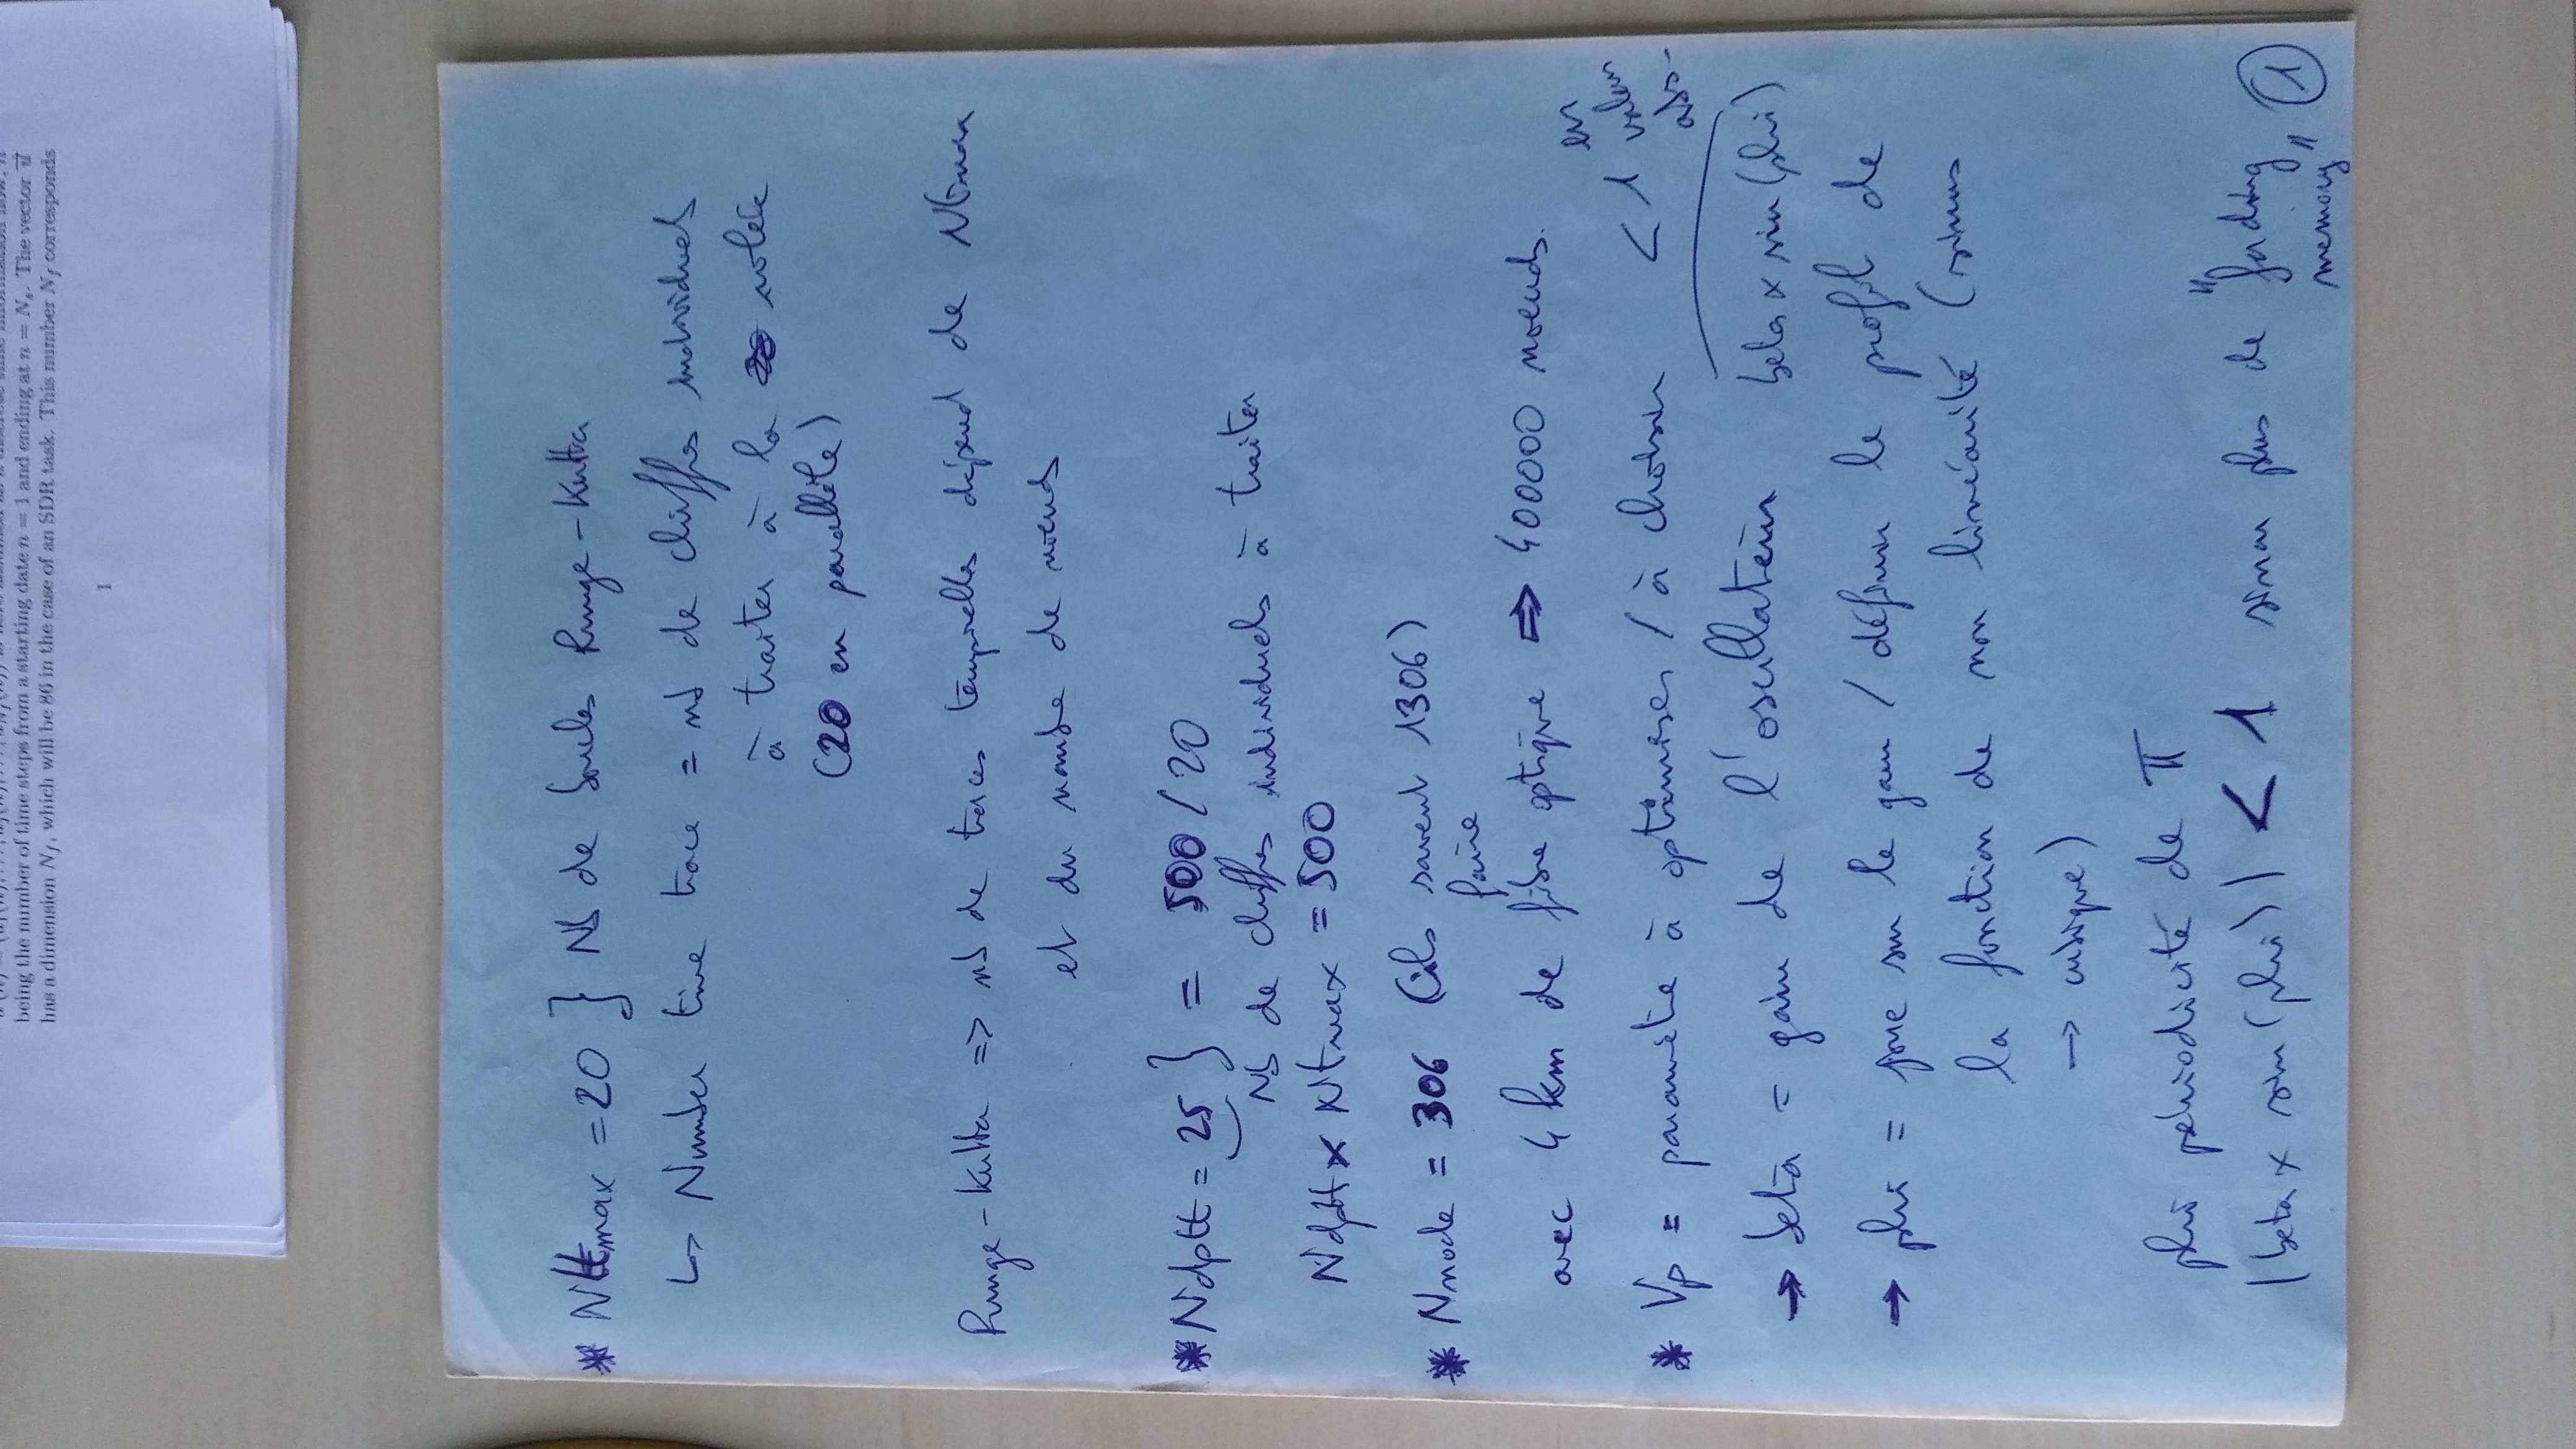 being the number of time steps from a starting date n = 1 and ending at n = Ns. The vector u⃗
has a dimension Nf, which will be 86 in the case of an SDR task. This number Nf corresponds
1
* Nttmax = 20 } Nb de boucles Runge-Kutta
↳ Number time trace = nb de chiffres individuels
à traiter à la volée
(20 en parallèle)
Runge-Kutta => nb de traces temporelles dépend de Ntmax
et du nombre de noeuds
* Ndptt = 25 } = 500/20
Nb de chiffres individuels à traiter
Ndptt x Ntmax = 500
* Nnode = 306 (ils savent 1306)
faire
avec 4 km de fibre optique => 400000 noeuds.
* Vp = paramètre à optimiser / à choisir < 1 en valeur abs.
→ beta = gain de l'oscillateur beta x sin(phi)
→ phi = joue sur le gain / définir le profil de
la fonction de non linéarité (sinus
→ cubique)
phi périodicité de π
|beta x sin(phi)| < 1 sinon plus de "fading
memory" 1